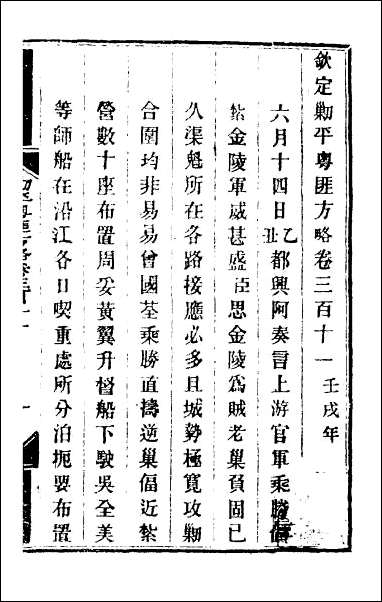 欽定勦平粵匪方略卷三百十一　壬戌年
六月十四日乙丑都興阿奏言上游官軍乘勝偪
紮金陵軍威甚盛臣思金陵爲賊老巢負固已
久渠魁所在各路接應必多且城勢極寬攻勦
合圍均非易易曾國荃乘勝直擣逆巢偪近紮
營數十座布置周妥黃翼升督船下駛吳全美
等師船在沿江各日喫重處所分泊扼要布置